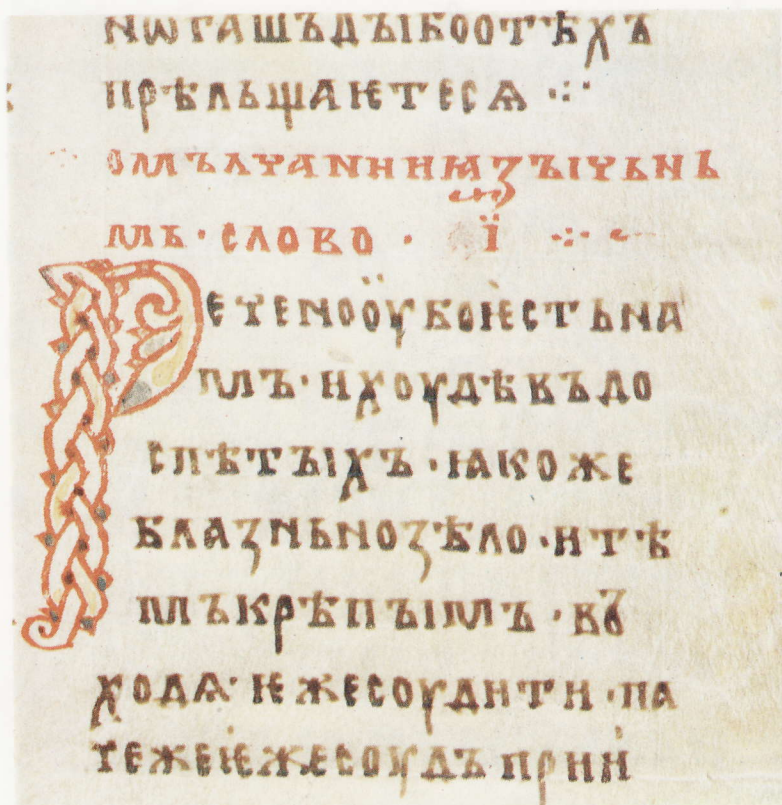 нѡгашъдъікоотѣхъ
прѣльщаѥтесѧ ·:·
омълчаниіꙗзъічьнѣ
мь · слово · ї ·:· ~
Рєченооу҆боѥстьна
мъ · ихоудѣвъдо
спѣтъіхъ · ꙗкоже
блазньноѕѣло · итѣ
мъкрѣпъімъ · въ
ходѧ · ѥжесоудити · па
чежеѥжесоудъприи